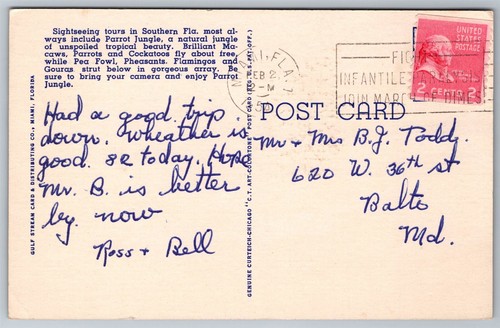 Sightseeing tours in Southern Fla. most al-
ways include Parrot Jungle, a natural jungle
of unspoiled tropical beauty. Brilliant Ma-
caws, Parrots and Cockatoos fly about free,
while Pea Fowl, Pheasants, Flamingos and
Gouras strut below in gorgeous array. Be
sure to bring your camera and enjoy Parrot
Jungle.
GULF STREAM CARD & DISTRIBUTING CO., MIAMI, FLORIDA
Had a good trip
down. Wheather is
good. 82 today. Hope
Mr. B. is better
by now
Ross + Bell
GENUINE CURTEICH-CHICAGO "C.T. ART-COLORTONE" POST CARD (REG. U.S. PAT. OFF.)
MIAMI, FLA.
FEB 2
INFANTILE
JOIN MARCH OF DIMES
UNITED
STATES
POSTAGE
2 CENTS 2
POST CARD
Mr + Mrs B.J. Toddy.
620 W. 36th st
Balto
Md.